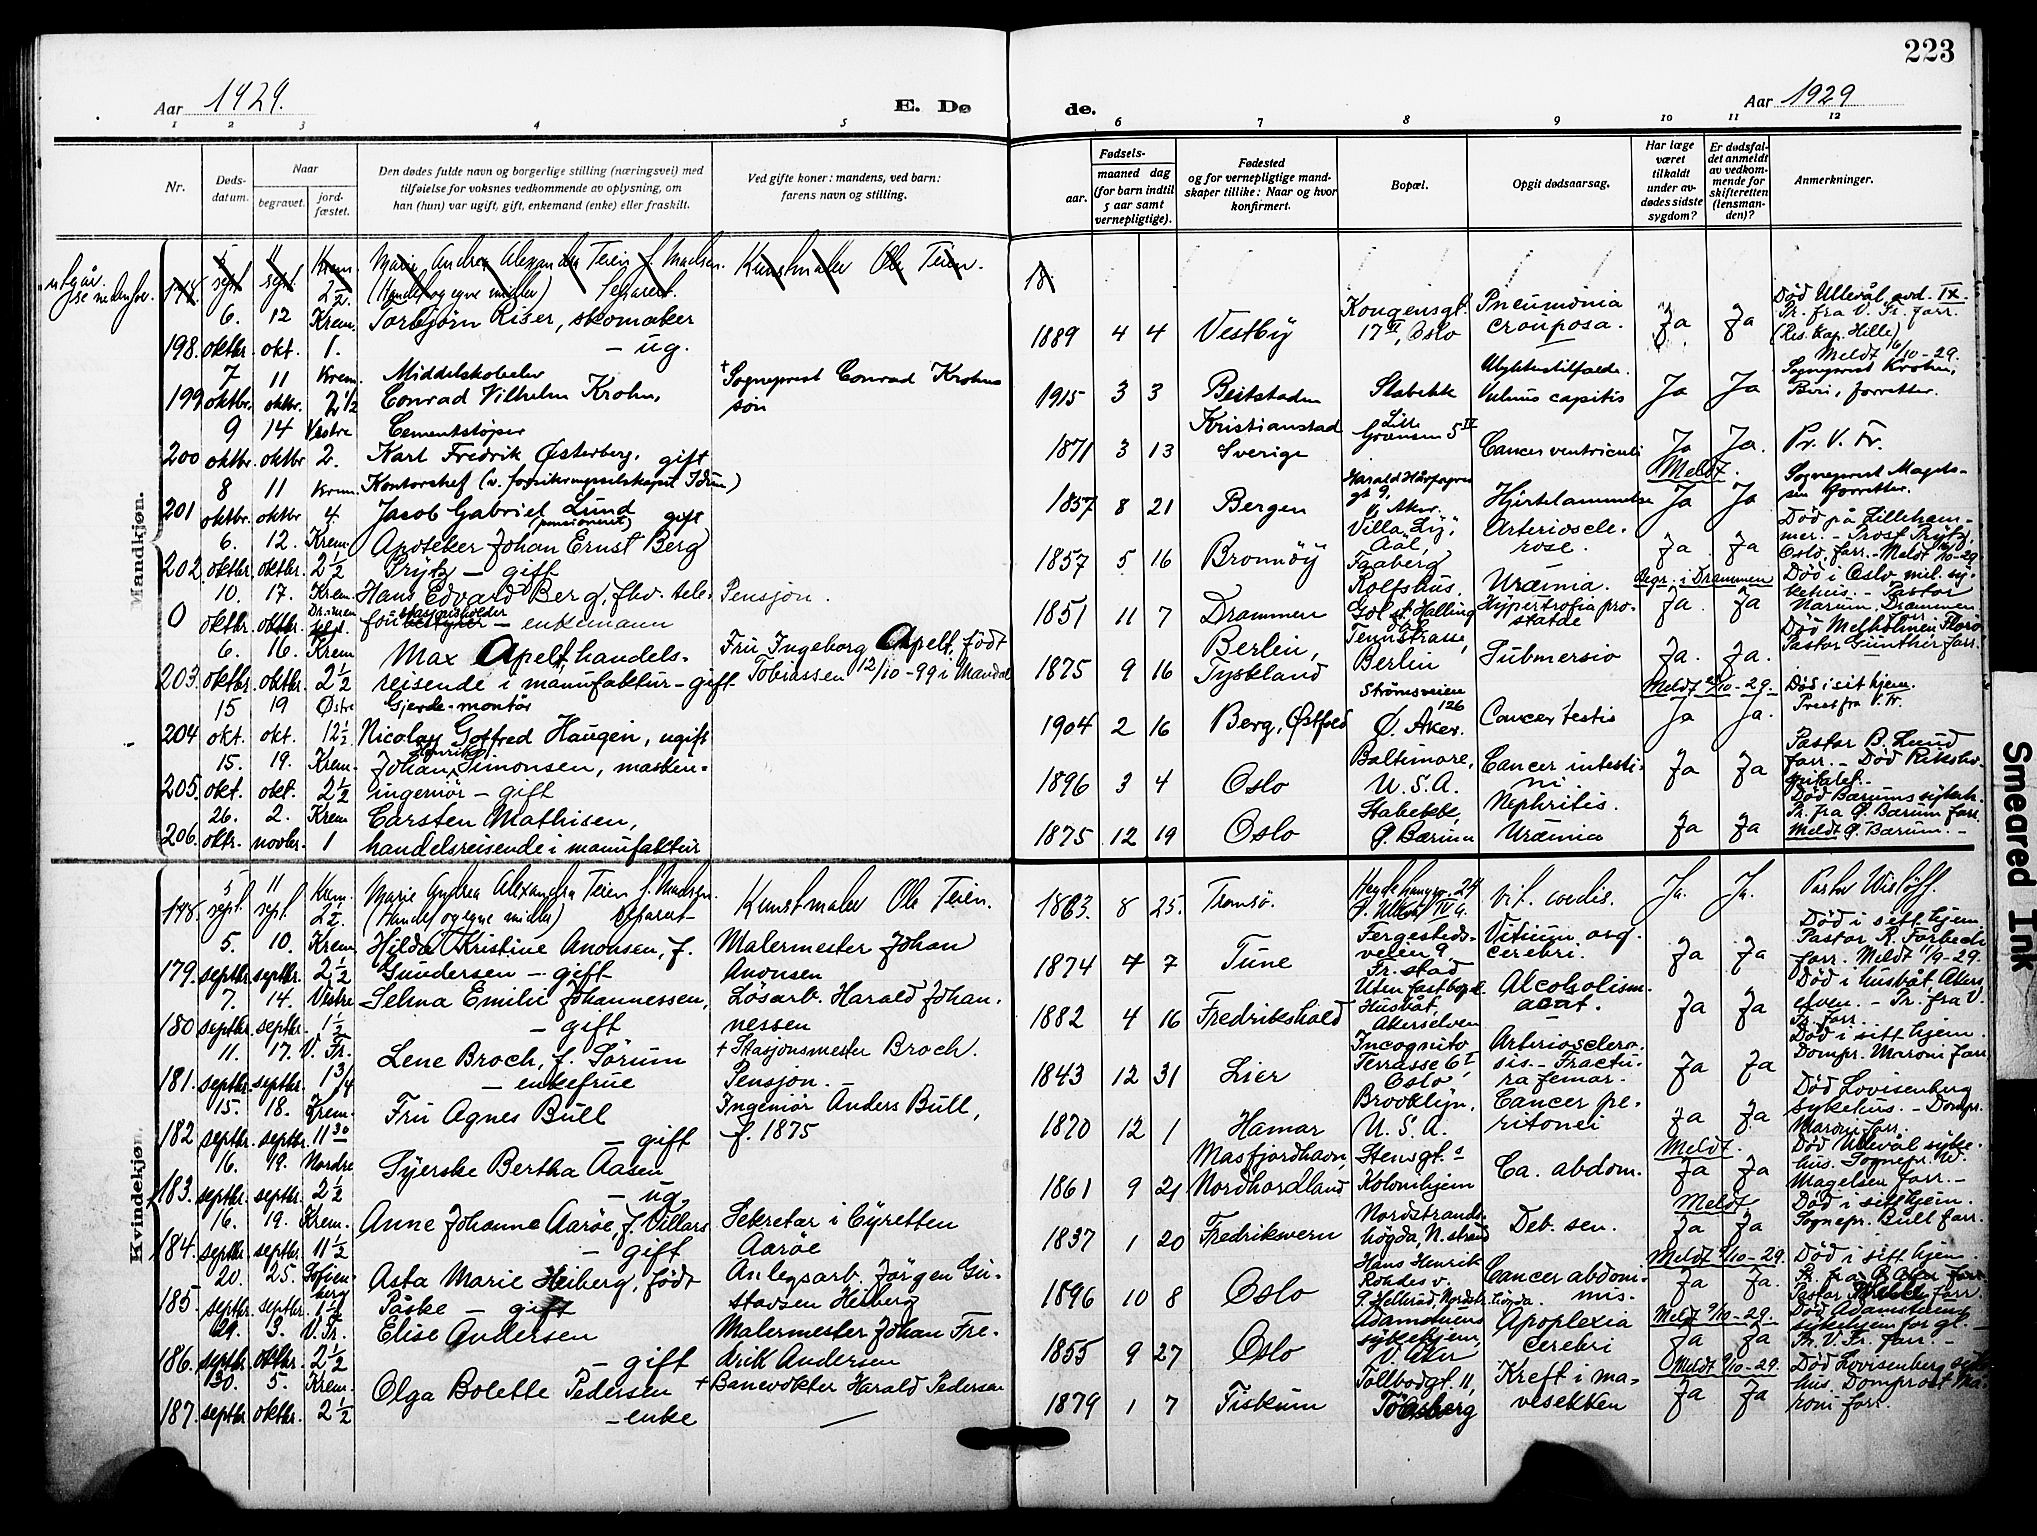 223
Aar 1929.
E. Dø
de.
Aar 1929
1 2 3 4 5 6 7 8 9 10 11 12
Nr.
Døds-
datum.
Naar
begravet.
jord-
fæstet.
Den dødes fulde navn og borgerlige stilling (næringsvei) med
tilføielse for voksnes vedkommende av oplysning, om
han (hun) var ugift, gift, enkemand (enke) eller fraskilt.
Ved gifte koner: mandens, ved barn:
farens navn og stilling.
Fødsels-
aar.
maaned dag
(for barn indtil
5 aar samt
vernepligtige).
Fødested
og for vernepligtige mand-
skaper tillike: Naar og hvor
konfirmert.
Bopæl.
Opgit dødsaarsag.
Har læge
været
tilkaldt
under av-
dødes sidste
sygdom?
Er dødsfal-
det anmeldt
av vedkom-
mende for
skifteretten
(lensman-
den)?
Anmerkninger.
Mandkjøn.
utgår.
se nedenfor.
178. 5 sept. 11 sept. Krem. 2½ Marie Andrea Alexandra Teien f. Madsen. Kunstmaler Ole Teien. 18
(Handel og egne midler) Separert.
198. 6. oktbr. 12 okt. Krem. 1. Torbjørn Riser, skomaker
– ug.
1889 4 4 Vestby Kongensgt. 17 II, Oslo Pneumonia crouposa. Ja Ja Død Ullevål avd. IX.
Pr. fra V. Fr. farr.
(Res. Kap. Hille)
Meldt 16/10-29.
199 7 oktbr. 11 oktbr. Krem. 2½ Middelskoleelev
Conrad Vilhelm Krohn, † Sogneprest Conrad Krohns
søn
1915 3 3 Beitstaden Stabekk Ulykkestilfælde.
Vulnus capitis Ja Ja Sogneprest Krohn,
Biri, forretter.
200 9 oktbr. 14 oktbr Vestre 2. Cementstøper
Karl Fredrik Østerberg. gift
1871 3 13 Kristianstad
Sverige Lille
Grænsen 5 IV Cancer ventriculi Ja Ja. Pr. V. Fr.
Meldt.
201 8 oktbr. 11 oktbr Krem. 4. Kontorchef (v. forsikringsselskapet Idun)
Jacob Gabriel Lund gift
(pensioneret)
1857 8 21 Bergen Harald Hårfagres
gt 9,
V. Aker. Hjertelammelse Ja Ja Sogneprest Magels-
sen forretter.
202. 6. oktbr. 12. oktbr. Krem. 2½ Apoteker Johan Ernst Berg
Prytz – gift
1857 5 16 Bronnøy Villa Ly,
Aal,
Faaberg Arterioscle-
rose. Ja Ja Død på Lilleham-
mer. – Prost Prytz,
Oslo, farr. – Meldt 16/10-29
0 10. oktbr. 17. oktbr. Krem. Hans Edvard Berg, fhv. tele- Pensjon.
fonbestyrer – enkemann
stasjonsholder
1851 11 7 Drammen Rolfshus.
Gol st. Halling
dal Uræmia.
Hypertrofia pro-
statae Begr. i Drammen
Ja. Ja Død i Oslo mil. sy-
kehus. – Pastor
Narum, Drammen
farr.
203. 6. oktbr. 16. oktbr. Krem 2½ Max Apelt, handels- Fru Ingeborg Apelt, født
reisende i manufaktur – gift Tobiassen 12/10-99 i Mandal
1875 9 16 Berlin,
Tyskland Berlin Submersio Ja. Ja.
Pastor Günther farr.
204 15 okt. 19 okt. Østre 12½ Gjerde-montør
Nicolay Gotfred Haugen, ugift
1904 2 16 Berg, Østfold Strømsveien
126
Ø. Aker. Cancer testis Ja Ja. Død i sit hjem.
Prest fra V. Fr.
205. 15. okt. 19. okt. Krem. 2½ Johan Henrik Simonsen, maskin-
ingeniør – gift
1896 3 4 Oslo Baltimore,
U.S.A. Cancer intesti-
ni. Ja Ja Pastor B. Lund
farr. – Død Riksho-
spitalet. –
206. 26. oktr. 2. novbr. Krem 1 Carsten Mathisen,
handelsreisende i manufaktur
1875 12 19 Oslo Stabekk,
Ø. Bærum Nephritis.
Urœmia Ja Ja Død Bærums sykeh.
Pr. fra Ø. Bærum farr.
Meldt Ø. Bærum. –
Kvindekjøn.
178. 5 sept. 11 sept. Krem. 2½. Marie Andrea Alexandra Teien f. Madsen. Kunstmaler Ole Teien.
(Handel og egne midler) Separert
1863. 8 25. Tromsø. Vit. cordis. Ja. Ja. Pastor Wisløff.
179. 5. septbr. 10. septbr. Krem 2½ Hilda Kristine Anonsen, f. Malermester Johan
Gundersen – gift Anonsen
1874 4 7 Tune Fergesteds-
veien 9
Fr. stad Vitium org.
cerebri. Ja Ja Død i sitt hjem
Pastor R. Forbech
farr. Meldt 11/9-29.
180 7. septbr. 14. septbr. Vestre 1½ Selma Emilie Johannessen, Løsarb. Harald Johan-
– gift nessen
1882 4 16 Fredrikshald Uten fast bopel.
Husbåt,
Akerselven Alcoholism.
acut. Ja Ja Død i husbåt, Akers
elven. – Pr. fra V.
Fr. farr.
181. 11. septbr. 17. septbr. V. Fr. 1 3/4 Lene Broch, f. Sørum † Stasjonsmester Broch.
– enkefrue Pensjon. –
1843 12 31 Lier Incognito
Terrasse 6 I
Oslo Arterioscle-ro-
sis – Fractu-
ra femor. Ja Ja Død i sitt hjem.
Dompr. Maroni farr
182 15. septbr. 18. septbr. Krem. 11 30 Fru Agnes Bull Ingeniør Anders Bull,
– gift f. 1875
1870 12 1 Hamar Brooklyn,
U.S.A. Cancer pe-
ritonei Ja Ja Død Lovisenberg
sykehus. – Dompr.
Maroni farr.
183. 16. septbr. 19. septbr. Nordre 2½ Syerske Bertha Aasen
– ug.
1861 9 21 Masfjordhavn,
Nordhordland Stensgt.
Kolonihjem Ca. abdom. Meldt.
Ja Ja Død Ullevål syke-
hus. Sognepr. W.
Magelsen farr. –
184. 16. septbr. 19. septbr. Krem. 11½ Anne Johanne Aarøe, f. Villars Sekretær i Byretten
– gift Aarøe
1837 1 20 Fredriksvern Nordstrands-
høgda, N. strand Deb. sen. Meldt
Ja Ja Død i sitt hjem.
Sognepr. Bull farr.
185. 20. septbr. 25. septbr. Sofien-
berg 1½ Asta Marie Heiberg, født Anlegsarb. Jørgen Gu-
Påske – gift stavsen Heiberg
1896 10 8 Oslo Hans Henrik
Rohdes v. Cancer abdom-
inis. Meldt 9/10-29.
Ja Ja. Død i sitt hjem.
186. 29. septbr. 3. oktbr. V. Fr. 2½ Elise Andersen Malermester Johan Fre-
– gift drik Andersen
1855 9 27 Oslo Adamstuens
sykehjem,
V. Aker Apoplexia
cerebri Meldt 9/10-29.
Ja Ja Død Adamstuens
sykehjem for gl. –
Pr. V. Fr. farr. –
187. 30. septbr 5. oktbr. Krem. 2½ Olga Bolette Pedersen † Banevokter Harald Pedersen
– enke
1879 1 7 Fiskum Tollbodgt. 11,
Tønsberg Kreft i ma-
vesekken Meldt 9/10-29.
Ja Ja Død Lovisenberg syke
hus. Domprost Ma-
roni farr
Smeared Ink